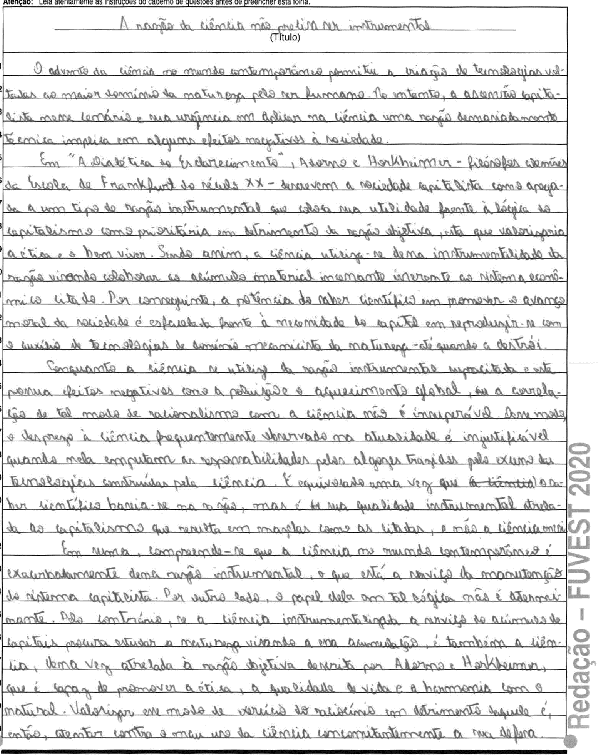 Atenção: Leia atentamente as instruções do caderno de questões antes de preencher esta folha.
A razão da ciência não precisa ser instrumental
(Título)
O advento da ciência no mundo contemporâneo permitiu a criação de tecnologias vol-
tadas ao maior domínio da natureza pelo ser humano. No entanto, a ascensão capita-
lista nesse cenário e sua urgência em aplicar na ciência uma razão demasiadamente
técnica implica em alguns efeitos negativos à sociedade.
Em "A Dialética do Esclarecimento", Adorno e Horkheimer - filósofos alemães
da Escola de Frankfurt do século XX - descrevem a sociedade capitalista como apega-
da a um tipo de razão instrumental que coloca sua utilidade frente à lógica do
capitalismo como prioritária em detrimento da razão objetiva, esta que valorizaria
a ética e o bem viver. Sendo assim, a ciência utiliza-se dessa instrumentalidade da
razão visando colaborar ao acúmulo material incessante inerente ao sistema econô-
mico citado. Por conseguinte, a potência do saber científico em promover o avanço
moral da sociedade é esfacelada frente à necessidade do capital em reproduzir-se com
o auxílio de tecnologias de domínio mecanicista da natureza - até quando a destrói.
Conquanto a ciência se utilize da razão instrumental supracitada e esta
possua efeitos negativos como a poluição e o aquecimento global, a correla-
ção de tal modo de racionalismo com a ciência não é insuperável. Desse modo,
o desprezo à ciência frequentemente observado na atualidade é injustificável
quando nela computam as responsabilidades pelos algozes trazidos pelo excesso das
tecnologias construídas pela ciência. É equivocado uma vez que o sa-
ber científico baseia-se na razão, mas é sua qualidade instrumental atrela-
da ao capitalismo que resulta em mazelas como as citadas, e não a ciência em si.
Em suma, compreende-se que a ciência no mundo contemporâneo é
exacerbadamente dessa razão instrumental, o que está a serviço da manutenção
do sistema capitalista. Por outro lado, o papel dela em tal lógica não é determi-
nante. Pelo contrário, se a ciência instrumentalizada a serviço do acúmulo de
capitais procura estudar a natureza visando a sua acumulação, é também a ciên-
cia, dessa vez atrelada à razão objetiva descrita por Adorno e Horkheimer,
que é capaz de promover a ética, a qualidade de vida e a harmonia com o
natural. Valorizar esse modo de exercício do raciocínio em detrimento daquele é,
então, atentar contra o mau uso da ciência concomitantemente a sua defesa.
Redação – FUVEST 2020